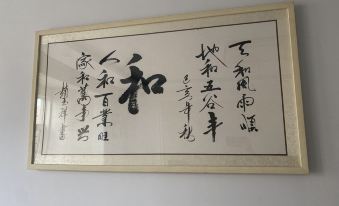 天和风雨顺
地和五谷丰
己亥年秋
和
人和百業旺
家和萬事興